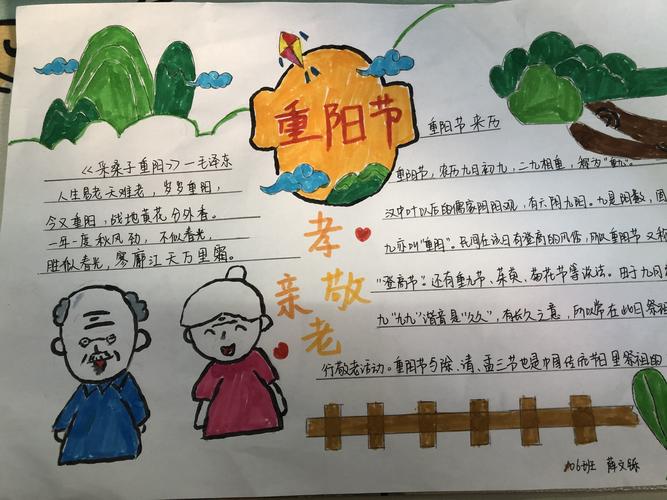 重阳节
《采桑子重阳》—毛泽东
人生易老天难老，岁岁重阳，
今又重阳，战地黄花分外香。
一年一度秋风劲，不似春光，
胜似春光，寥廓江天万里霜。
孝
亲
敬
老
重阳节来历
重阳节，农历九月初九，二九相重，称为"重九"。
汉中叶以后的儒家阴阳观，有六阴九阳。九是阳数，因
九亦叫"重阳"。民间在该日有登高的风俗，所以重阳节又称
"登高节"。还有重九节、茱萸、菊花节等说法。由于九月初
九"九九"谐音是"久久"，有长久之意，所以常在此日祭祖
行敬老活动。重阳节与除、清、盂三节也是中国传统节日里祭祖的
106班 薛文铄